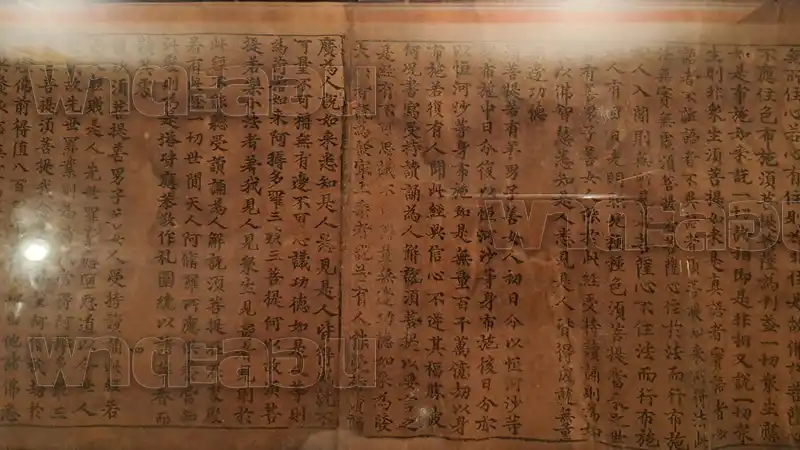 無所住心若心有住則為非住是故佛說菩薩心
不應住色布施須菩提菩薩為利益一切衆生應
如是布施如來說一切諸相即是非相又說一切衆
生則非衆生須菩提如來是真語者實語者如
語者不誑語者不異語者須菩提如來所得法此
法無實無虛須菩提若菩薩心住於法而行布施
如人入闇則無所見若菩薩心不住法而行布施
人有目日光明照見種種色須菩提當來之世
若有善男子善女人能於此經受持讀誦則為如
來以佛智慧悉知是人悉見是人皆得成就無量
無邊功德
須菩提若有善男子善女人初日分以恒河沙等
身布施中日分復以恒河沙等身布施後日分亦
以恒河沙等身布施如是無量百千萬億劫以身
布施若復有人聞此經典信心不逆其福勝彼
何況書寫受持讀誦為人解說須菩提以要言之
是經有不可思議不可稱量無邊功德如來為發
大乘者說為發最上乘者說若有人能受持讀誦
廣為人說如來悉知是人悉見是人皆得成就不
可量不可稱無有邊不可思議功德如是人等則
為荷擔如來阿耨多羅三藐三菩提何以故須菩
提若樂小法者著我見人見衆生見壽者見則於
此經不能聽受讀誦為人解說須菩提在在處處
若有此經一切世間天人阿脩羅所應供養當知
此處則為是塔皆應恭敬作禮圍繞以諸華香而
散其處
復次須菩提善男子善女人受持讀誦此經若
為人輕賤是人先世罪業應墮惡道以今世人
輕賤故先世罪業則為消滅當得阿耨多羅三
菩提須菩提我念過去無量阿僧祇劫於
燈佛前得值八百 他諸佛悉